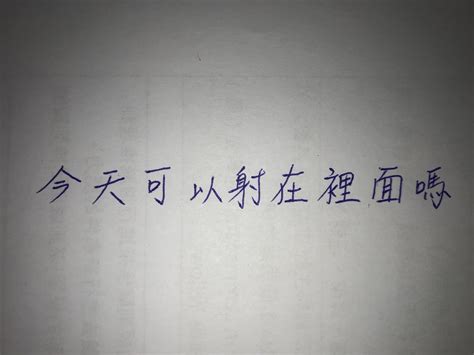 今天可以射在裡面嗎